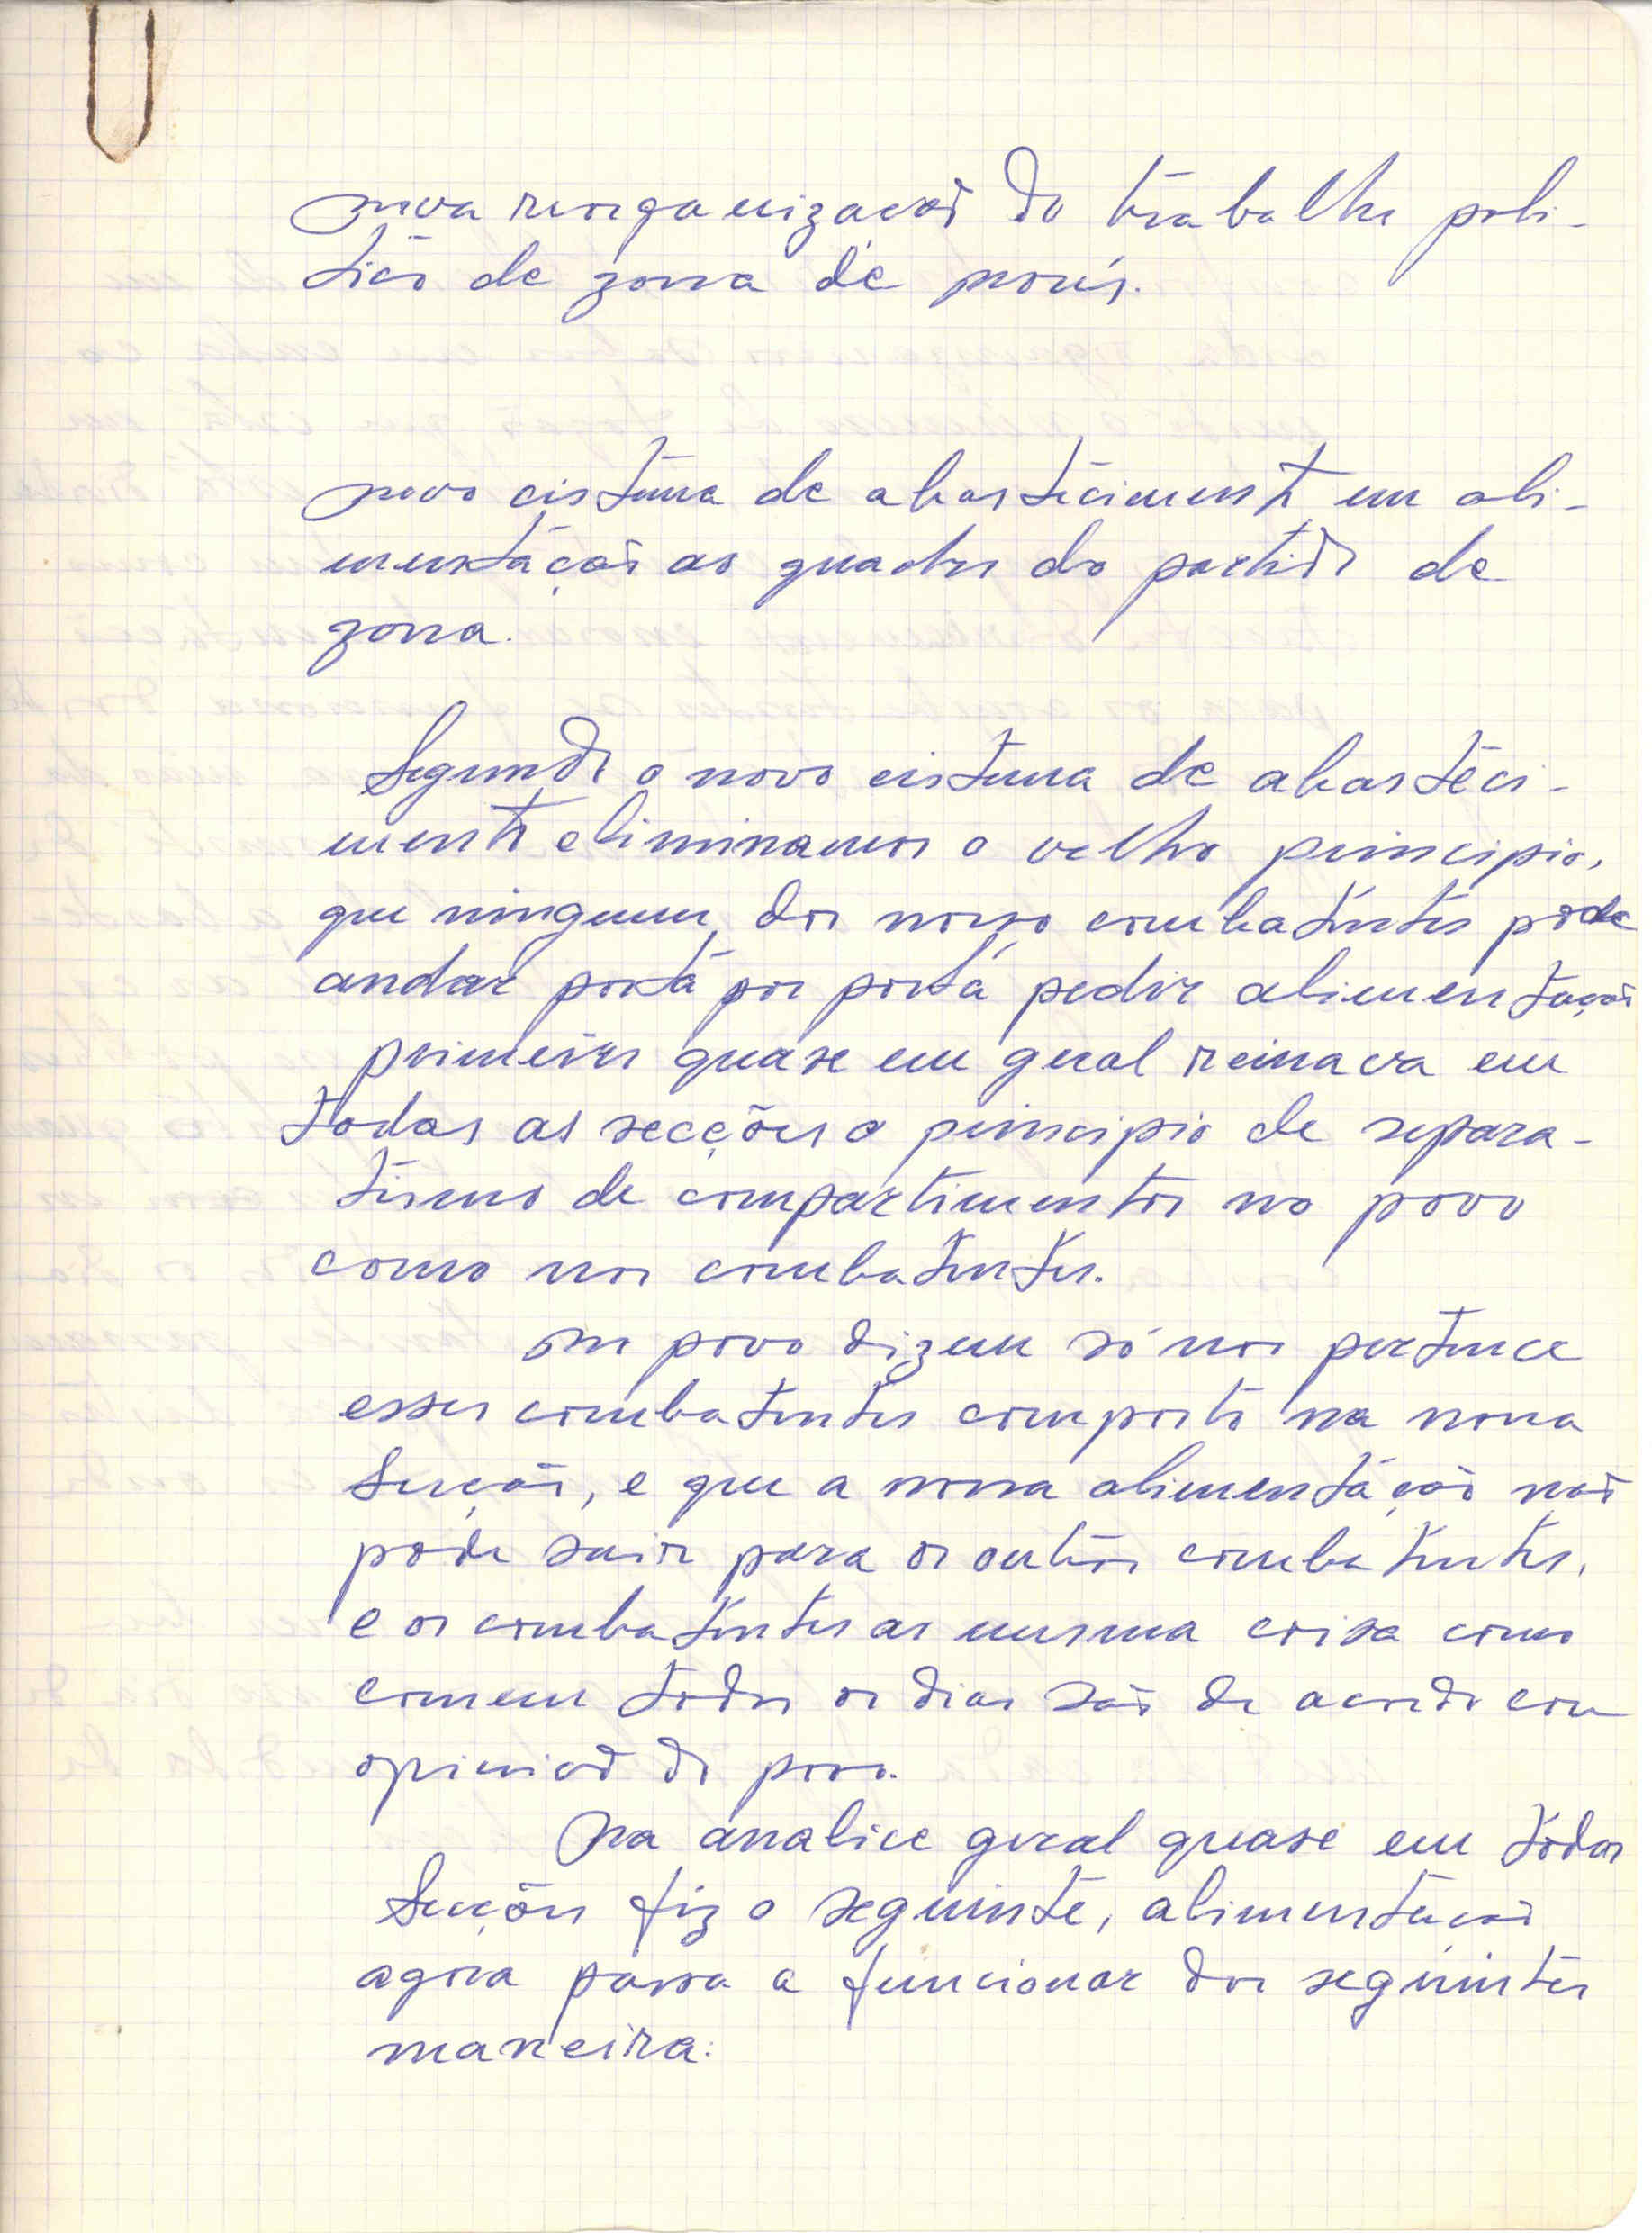 nova reorganizacaõ do trabalho poli-
tico de zona de norés.
novo cistema de abastecimento em ali-
mentaçaõ ao quadros do partido de
zona.
Segundo o novo cistema de abasteci-
mento eliminamos o velho principio,
que ninguem dos nosso combatentes pode
andar porta por porta pedir alimentaçaõ
primeiro quase em geral reinava em
todas as secções o principio de separa-
tismo de compartimentos no povo
como nos combatentes.
No povo dizem só nos pertence
esses combatentes composto na nossa
Secçaõ, e que a nossa alimentaçaõ naõ
pode sair para os outros combatentes,
e os combatentes as mesma coisa como
comem todos os dias saõ de acordo com
opiniaõ do povo.
Na analice geral quase em todas
Secções fiz o seguinte, alimentaçaõ
agora passa a funcionar dos seguintes
maneira: